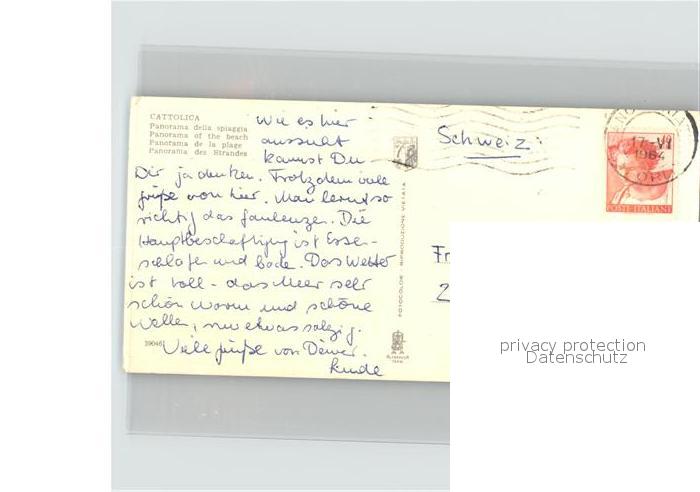 CATTOLICA
Panorama della spiaggia
Panorama of the beach
Panorama de la plage
Panorama des Strandes
Wie es hier
aussieht
kannst Du
Dir ja denken. Trotzdem viele
Grüße von hier. Man lernt so
richtig das faulenzen. Die
Hauptbeschäftigung ist Essen-
schlafen und baden. Das Wetter
ist toll - das Meer sehr
schön warm und schöne
Wellen, nur etwas salzig.
Viele Grüße von Deiner
39046
FOTOCOLOR RIPRODUZIONE VIETATA
Schweiz
17-VI
1964
POSTE ITALIANE
Fr
2
privacy protection
Datenschutz